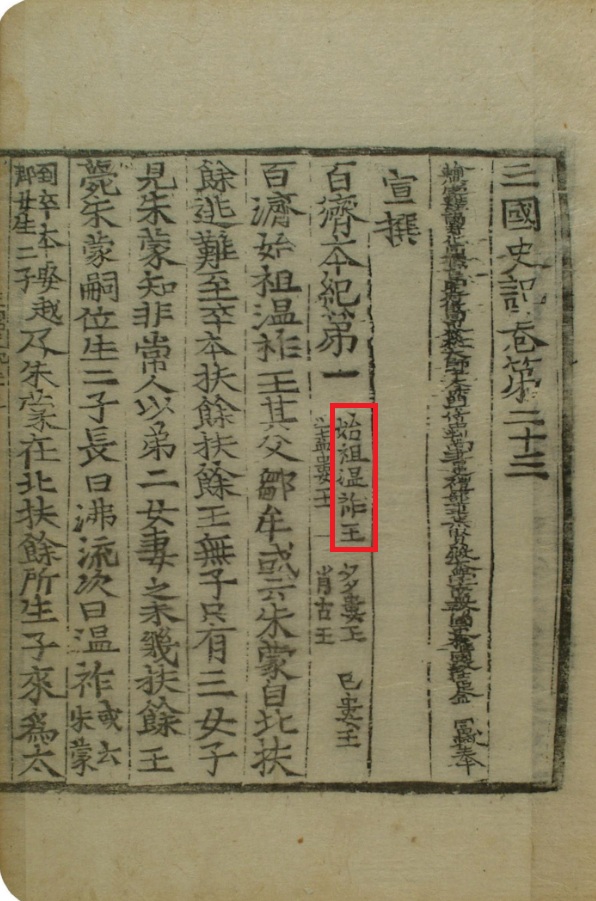 三國史記卷第二十三
宣撰
百濟本紀第一 始祖温祚王 多婁王 己婁王
蓋婁王 肖古王
百濟始祖温祚王其父鄒牟或云朱蒙自北扶
餘逃難至卒本扶餘扶餘王無子只有三女子
見朱蒙知非常人以第二女妻之未幾扶餘王
薨朱蒙嗣位生二子長曰沸流次曰温祚或云朱蒙
到卒本娶越郡女生二子及朱蒙在北扶餘所生子來爲太